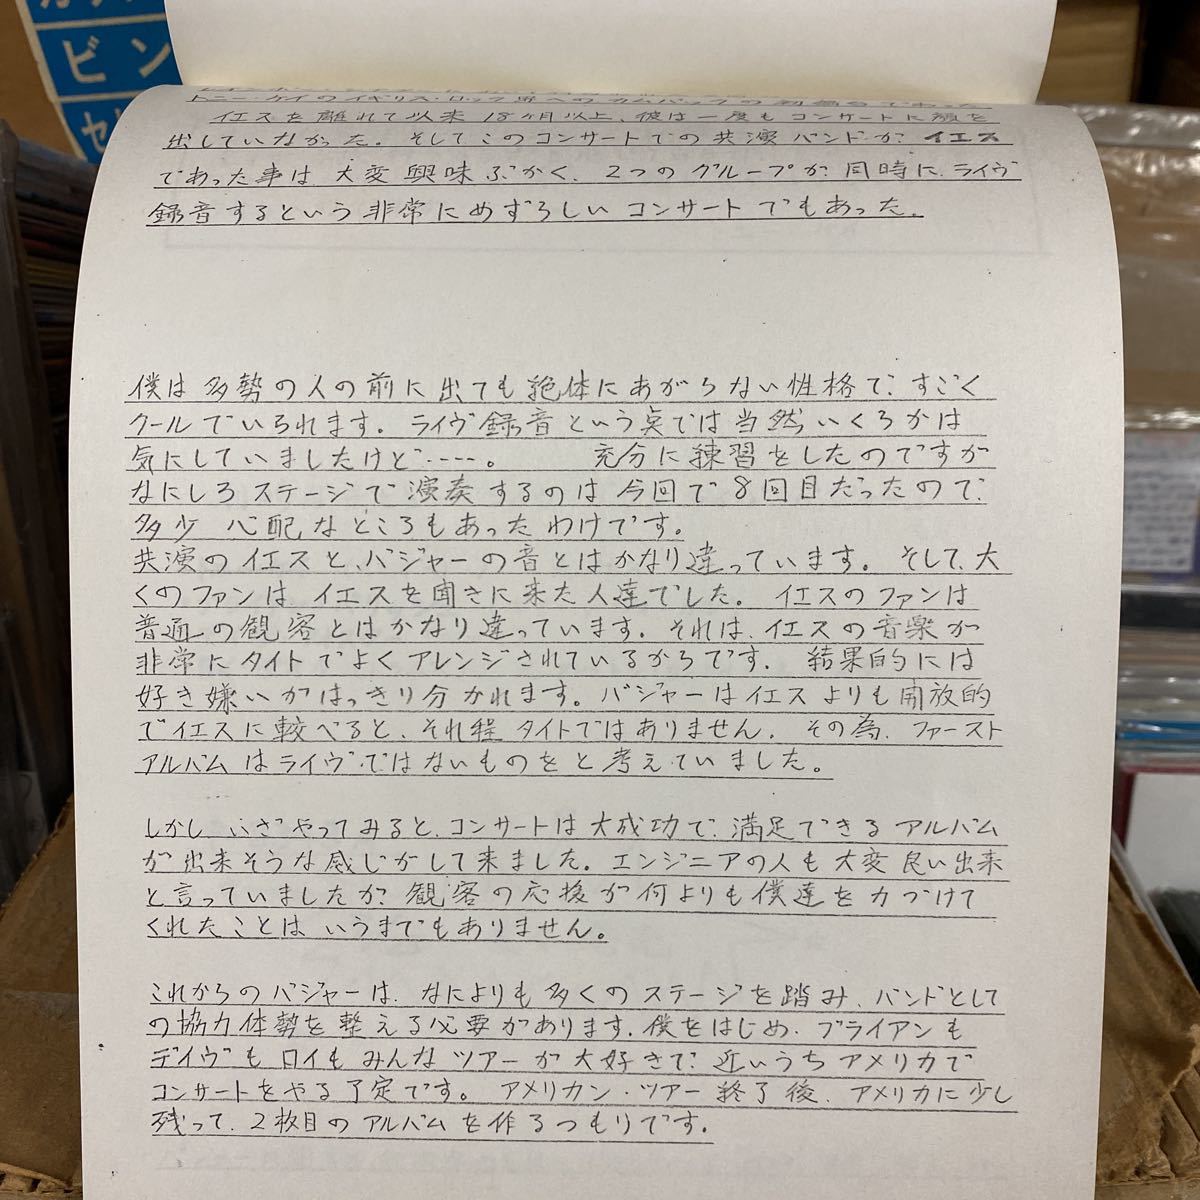 ビン
セ
トニー・ケイのイギリス・ロック界へのカムバックの
イエスを離れて以来18ヶ月以上、彼は一度もコンサートに顔を
出していなかった。そしてこのコンサートでの共演バンドが、イエス
であった事は、大変興味ぶかく、2つのグループが、同時に、ライヴ
録音するという非常にめずらしいコンサートでもあった。
僕は多勢の人の前に出ても絶体にあがらない性格で、すごく
クールでいられます。ライヴ録音という点では当然いくらかは
気にしていましたけど・・・・・。 充分に練習をしたのですが
なにしろステージで演奏するのは今回で8回目だったので、
多少心配なところもあったわけです。
共演のイエスと、バジャーの音とはかなり違っています。そして、大
くのファンはイエスを聞きに来た人達でした。イエスのファンは
普通の観客とはかなり違っています。それは、イエスの音楽が
非常にタイトでよくアレンジされているからです。結果的には
好き嫌いがはっきり分かれます。バジャーはイエスよりも開放的
でイエスに較べると、それ程タイトではありません。その為、ファースト
アルバムはライヴではないものをと考えていました。
しかしいざやってみると、コンサートは大成功で、満足できるアルバム
が出来そうな感じがして来ました。エンジニアの人も大変良い出来
と言っていましたが、観客の応援が何よりも僕達を力づけて
くれたことはいうまでもありません。
これからのバジャーは、なによりも多くのステージを踏み、バンドとして
の協力体勢を整える必要があります。僕をはじめ、ブライアンも
デイヴもロイもみんなツアーが大好きで、近いうちアメリカで
コンサートをやる予定です。アメリカン・ツアー終了後、アメリカに少し
残って、2枚目のアルバムを作るつもりです。